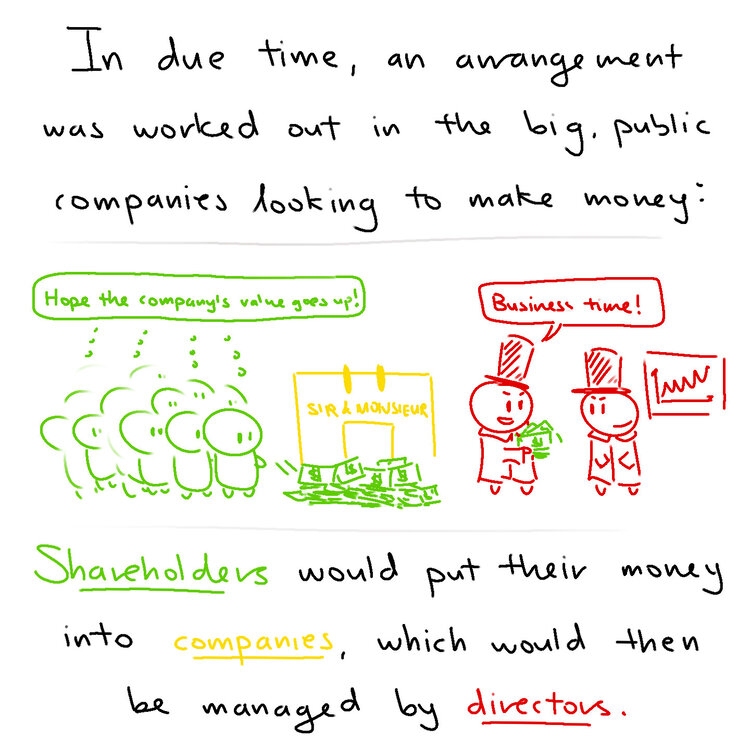 In due time, an arrangement
was worked out in the big, public
companies looking to make money:
Hope the company's value goes up!
Business time!
SIR & MONSIEUR
$ $ $ $
$
Shareholders would put their money
into companies, which would then
be managed by directors.